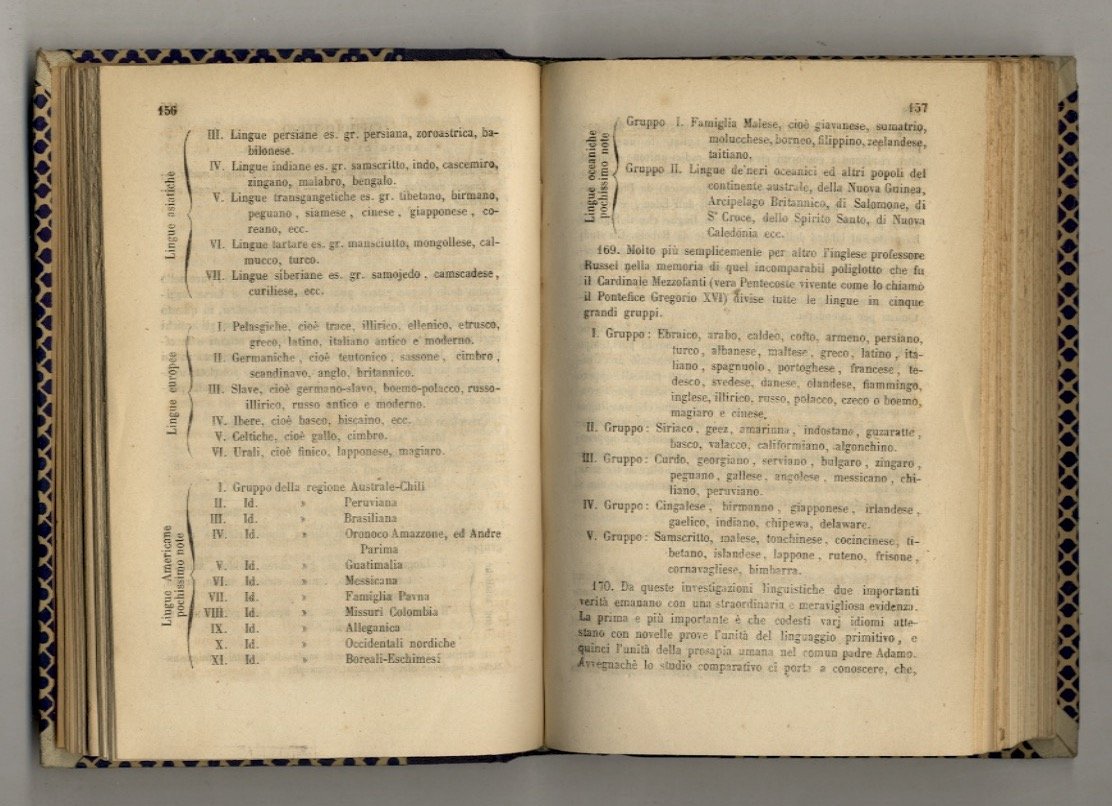 156
Lingue asiatiche
III. Lingue persiane es. gr. persiana, zoroastrica, ba-
bilonese.
IV. Lingue indiane es. gr. samscritto, indo, cascemiro,
zingano, malabro, bengalo.
V. Lingue transgangetiche es. gr. tibetano, birmano,
peguano, siamese, cinese, giapponese, co-
reano, ecc.
VI. Lingue tartare es. gr. mansciutto, mongollese, cal-
mucco, turco.
VII. Lingue siberiane es. gr. samojedo, camscadese,
curiliese, ecc.
Lingue europee
I. Pelasgiche, cioè trace, illirico, ellenico, etrusco,
greco, latino, italiano antico e moderno.
II. Germaniche, cioè teutonico, sassone, cimbro,
scandinavo, anglo, britannico.
III. Slave, cioè germano-slavo, boemo-polacco, russo-
illirico, russo antico e moderno.
IV. Ibere, cioè basco, biscaino, ecc.
V. Celtiche, cioè gallo, cimbro.
VI. Urali, cioè finico, lapponese, magiaro.
Lingue Americane
pochissimo note
I. Gruppo della regione Australe-Chili
II. Id. » Peruviana
III. Id. » Brasiliana
IV. Id. » Oronoco Amazzone, ed Andre
Parima
V. Id. » Guatimalia
VI. Id. » Messicana
VII. Id. » Famiglia Pavna
VIII. Id. » Missuri Colombia
IX. Id. » Alleganica
X. Id. » Occidentali nordiche
XI. Id. » Boreali-Eschimesi
157
Lingue oceaniche
pochissimo note
Gruppo I. Famiglia Malese, cioè giavanese, sumatrio,
molucchese, borneo, filippino, zeelandese,
taitiano.
Gruppo II. Lingue de'neri oceanici ed altri popoli del
continente australe, della Nuova Guinea,
Arcipelago Britannico, di Salomone, di
Sª Cruce, dello Spirito Santo, di Nuova
Caledonia ecc.
169. Molto più semplicemente per altro l'inglese professore
Russel nella memoria di quel incomparabil poliglotto che fu
il Cardinale Mezzofanti (vera Pentecoste vivente come lo chiamò
il Pontefice Gregorio XVI) divise tutte le lingue in cinque
grandi gruppi.
I. Gruppo: Ebraico, arabo, caldeo, cofto, armeno, persiano,
turco, albanese, maltese, greco, latino, ita-
liano, spagnuolo, portoghese, francese, te-
desco, svedese, danese, olandese, fiammingo,
inglese, illirico, russo, polacco, czeco o boemo,
magiaro e cinese.
II. Gruppo: Siriaco, geez, amarinna, indostano, guzaratte,
basco, valacco, califormiano, algonchino.
III. Gruppo: Curdo, georgiano, serviano, bulgaro, zingaro,
peguano, gallese, angolese, messicano, chi-
liano, peruviano.
IV. Gruppo: Cingalese, birmanno, giapponese, irlandese,
gaelico, indiano, chipewa, delaware.
V. Gruppo: Samscritto, malese, tonchinese, cocincinese, ti-
betano, islandese, lappone, ruteno, frisone,
cornavagliese, bimbarra.
170. Da queste investigazioni linguistiche due importanti
verità emanano con una straordinaria e meravigliosa evidenza.
La prima e più importante è che codesti varj idiomi atte-
stano con novelle prove l'unità del linguaggio primitivo, e
quinci l'unità della prosapia umana nel comun padre Adamo.
Avvegnachè lo studio comparativo ci porta a conoscere, che,